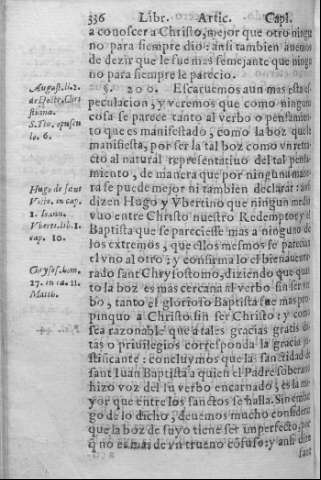 336 Libr. Artic. Capl.
a conoscer a Christo, mejor que otro ningu
no para siempre dio: ansi tambien auemos
de dezir que le fue mas semejante que ningu
no para siempre le parecio.
§. 200. Escaruemos aun mas esta es
peculacion, y veremos que como ninguna
cosa se parece tanto al verbo o pensamien
to que es manifestado, como la boz que le
manifiesta, por ser la tal boz como vn retra
cto al natural representatiuo del tal pensa
miento, de manera que por ninguna mane
ra se puede mejor ni tambien declarar: ansi
dizen Hugo y Vbertino que ningun medio
vuo entre Christo nuestro Redemptor y el
Baptista que se pareciesse mas a ninguno de
los extremos, que ellos mesmos se parecian
el vno al otro: y confirma lo el bienauentu
rado sant Chrysostomo, diziendo que quan
to la boz es mas cercana al verbo sin ser ver
bo, tanto el glorioso Baptista fue mas pro
pinquo a Christo sin ser Christo: y como
sea razonable que a tales gracias gratis da
tas o priuilegios corresponda la gracia ju
stificante: concluymos que la sanctidad de
sant Iuan Baptista a quien el Padre soberano
hizo voz del su verbo encarnado, es la ma
yor que entre los sanctos se halla. Sin embar
go de lo dicho, deuemos mucho considerar
que la boz de suyo tiene ser imperfecto, por
q̃ no es mas de vn trueno cõfuso: y ansi dize
sant
August. li. 2.
de Doctr. Chri
stiana.
S. Tho. opuscu
lo. 6.
Hugo de sant
Victo. in cap.
1. Ioann.
Vberti. lib. 1.
cap. 10.
Chrysos. hom.
27. in ca. 11.
Matth.